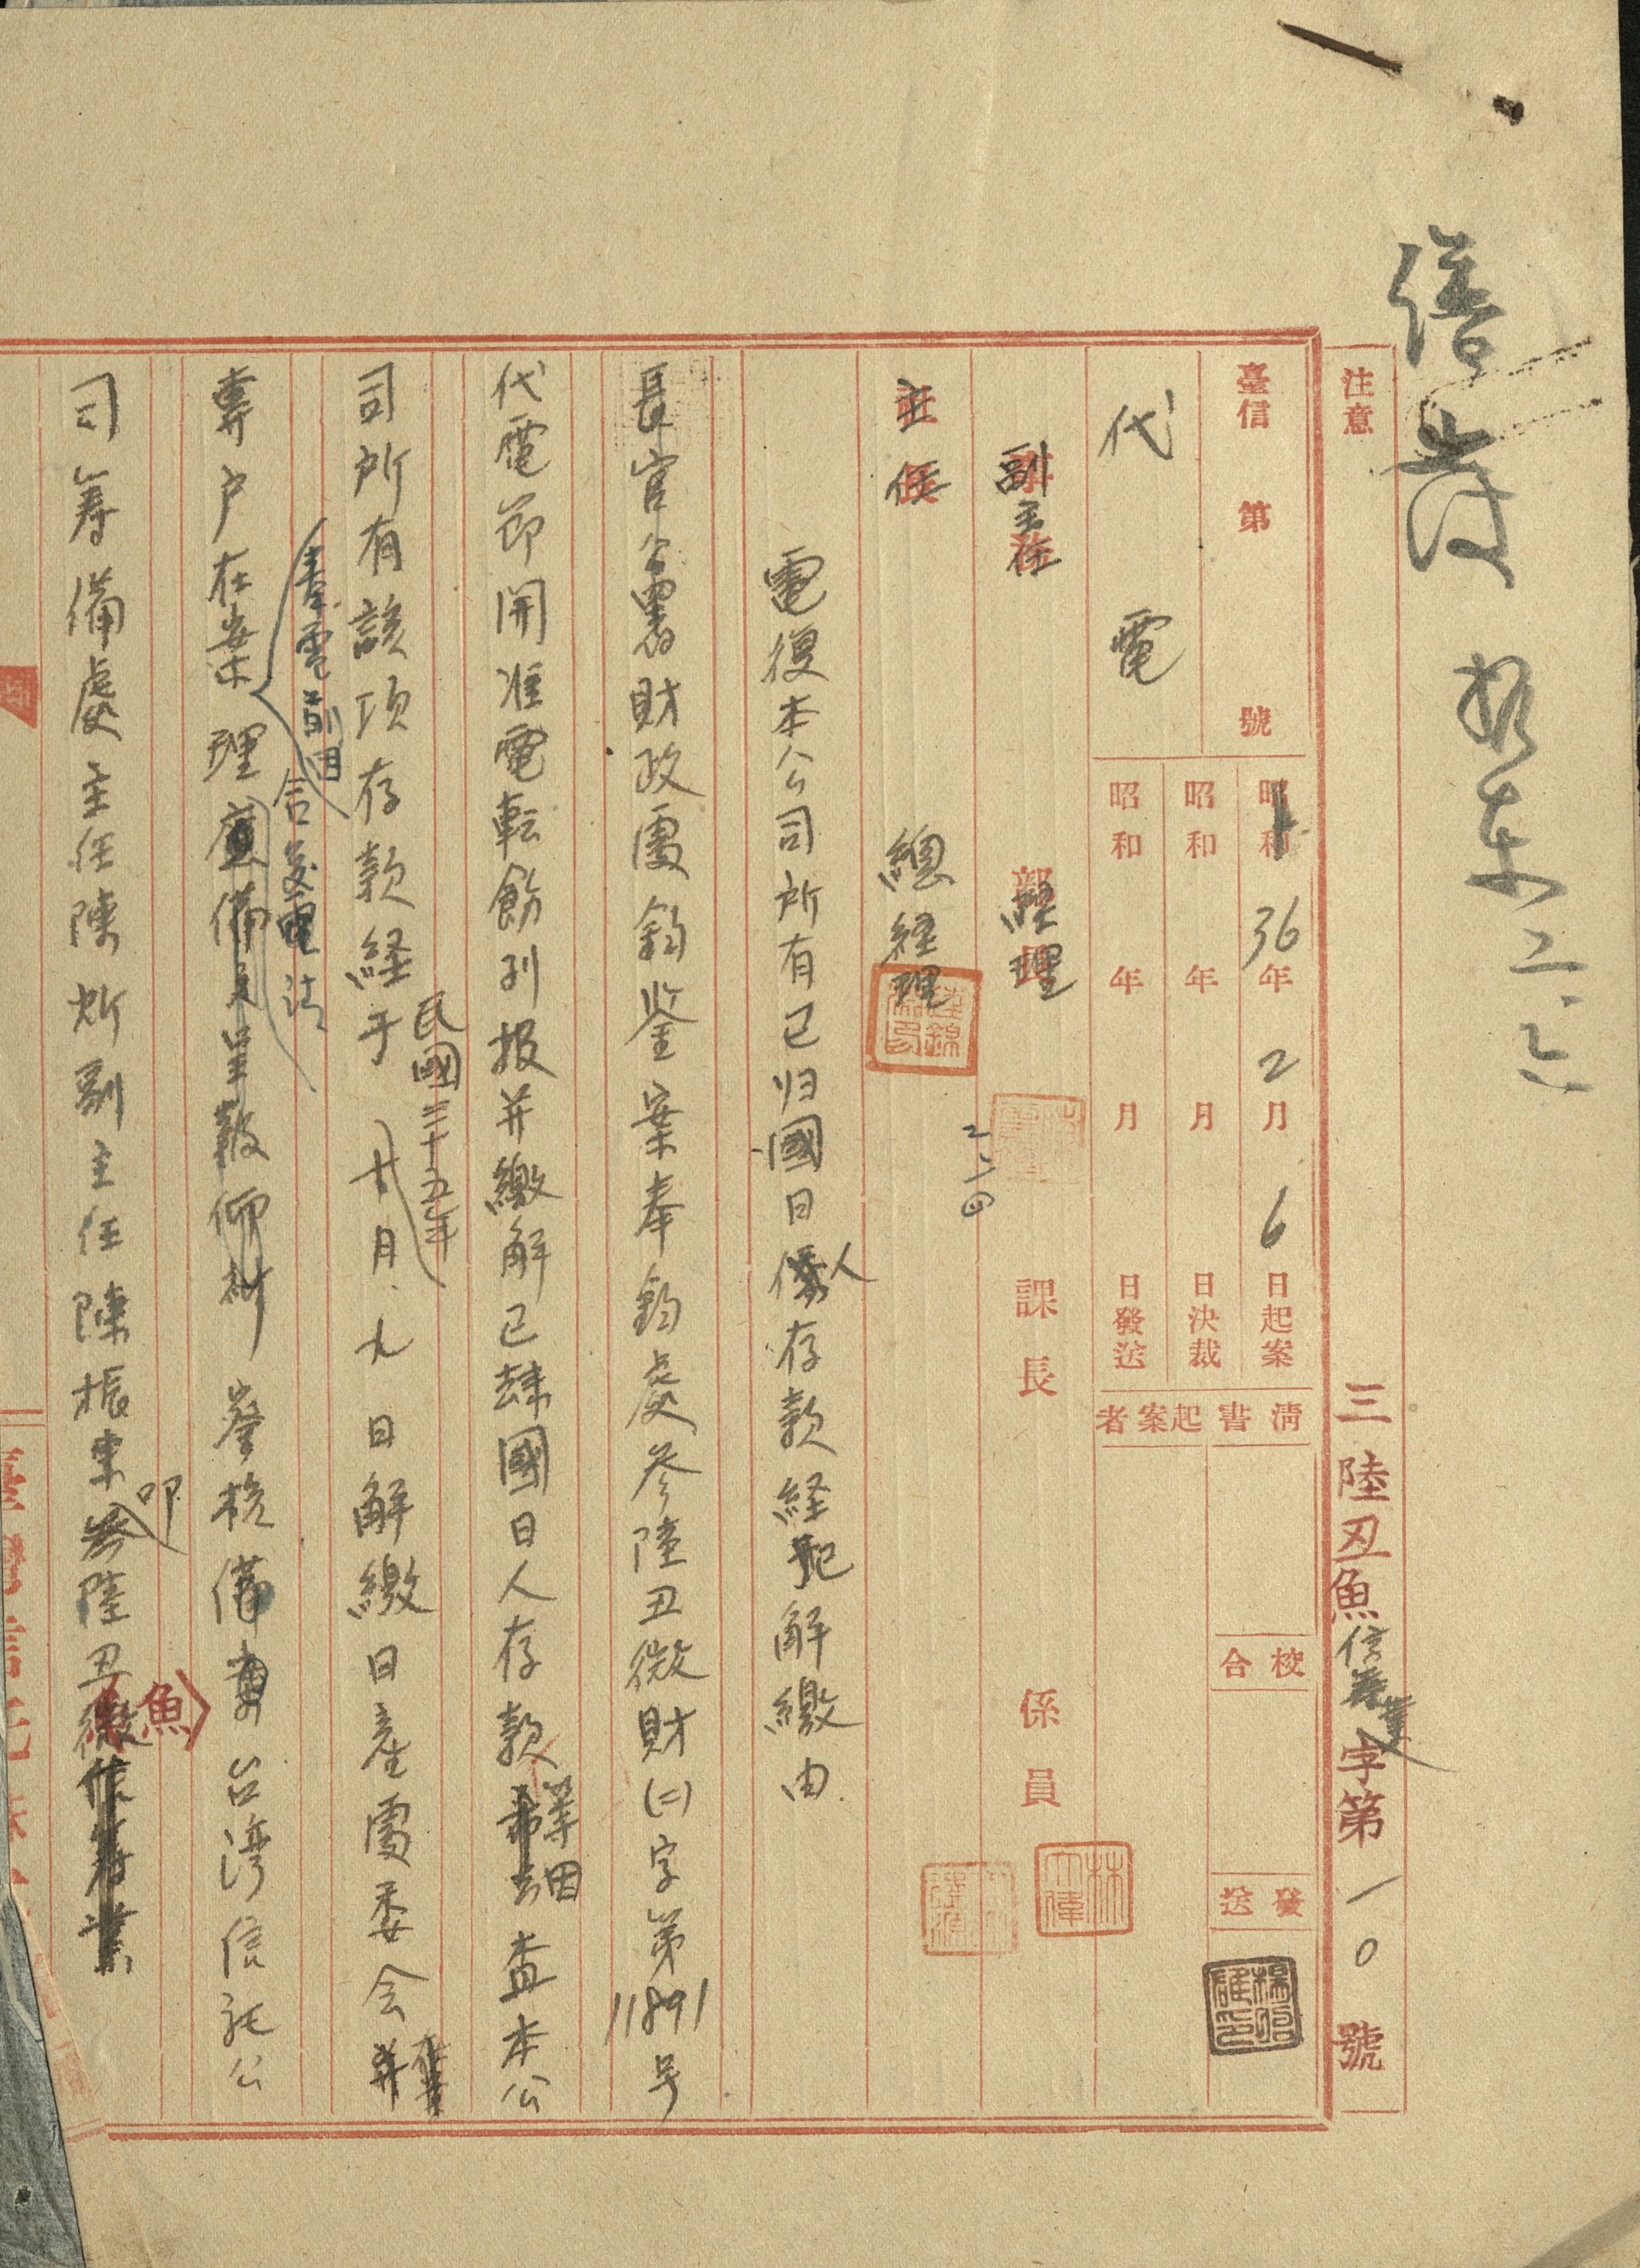 繕發 振東 二.六
注意
三陸丑魚信筹業字第一〇號
臺信 第 號
昭和36年2月6日起案
昭和 年 月 日決裁
昭和 年 月 日發送
清書 起案者
校合
發送
代電
副主任 經理
部長 課長 係員
主任 總経理
二、六
電復本公司所有已归國日僑人存款経已解繳由
長官公署財政處鈞鑒案奉鈞處参陸丑微財㈡字第11891号
代電節開准電転飭列报并繳解已歸國日人存款等因查本公
司所有該項存款経于民國三十五年 月九日解繳日産處委会
專户在案
奉電前因
合亟電請
理應備文呈報仰祈 詧核備查台湾信託公
司筹備處主任陳炘副主任陳振東叩参陸丑魚